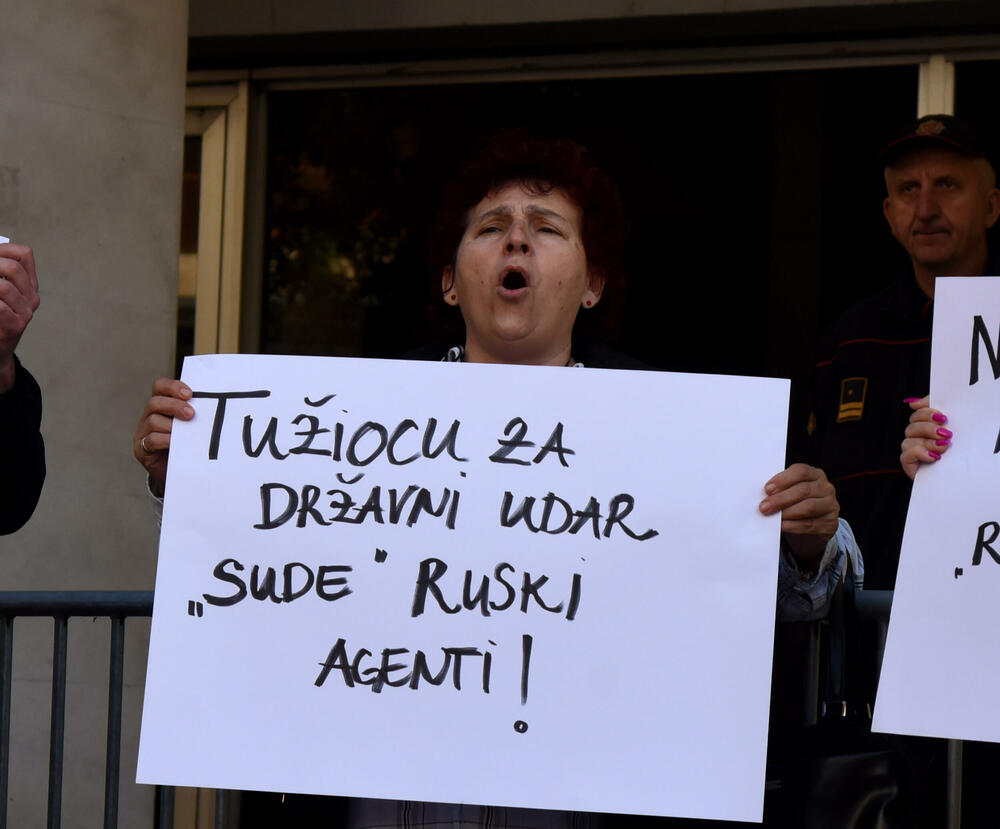 TUŽIOCU ZA
DRŽAVNI UDAR
„SUDE" RUSKI
AGENTI!